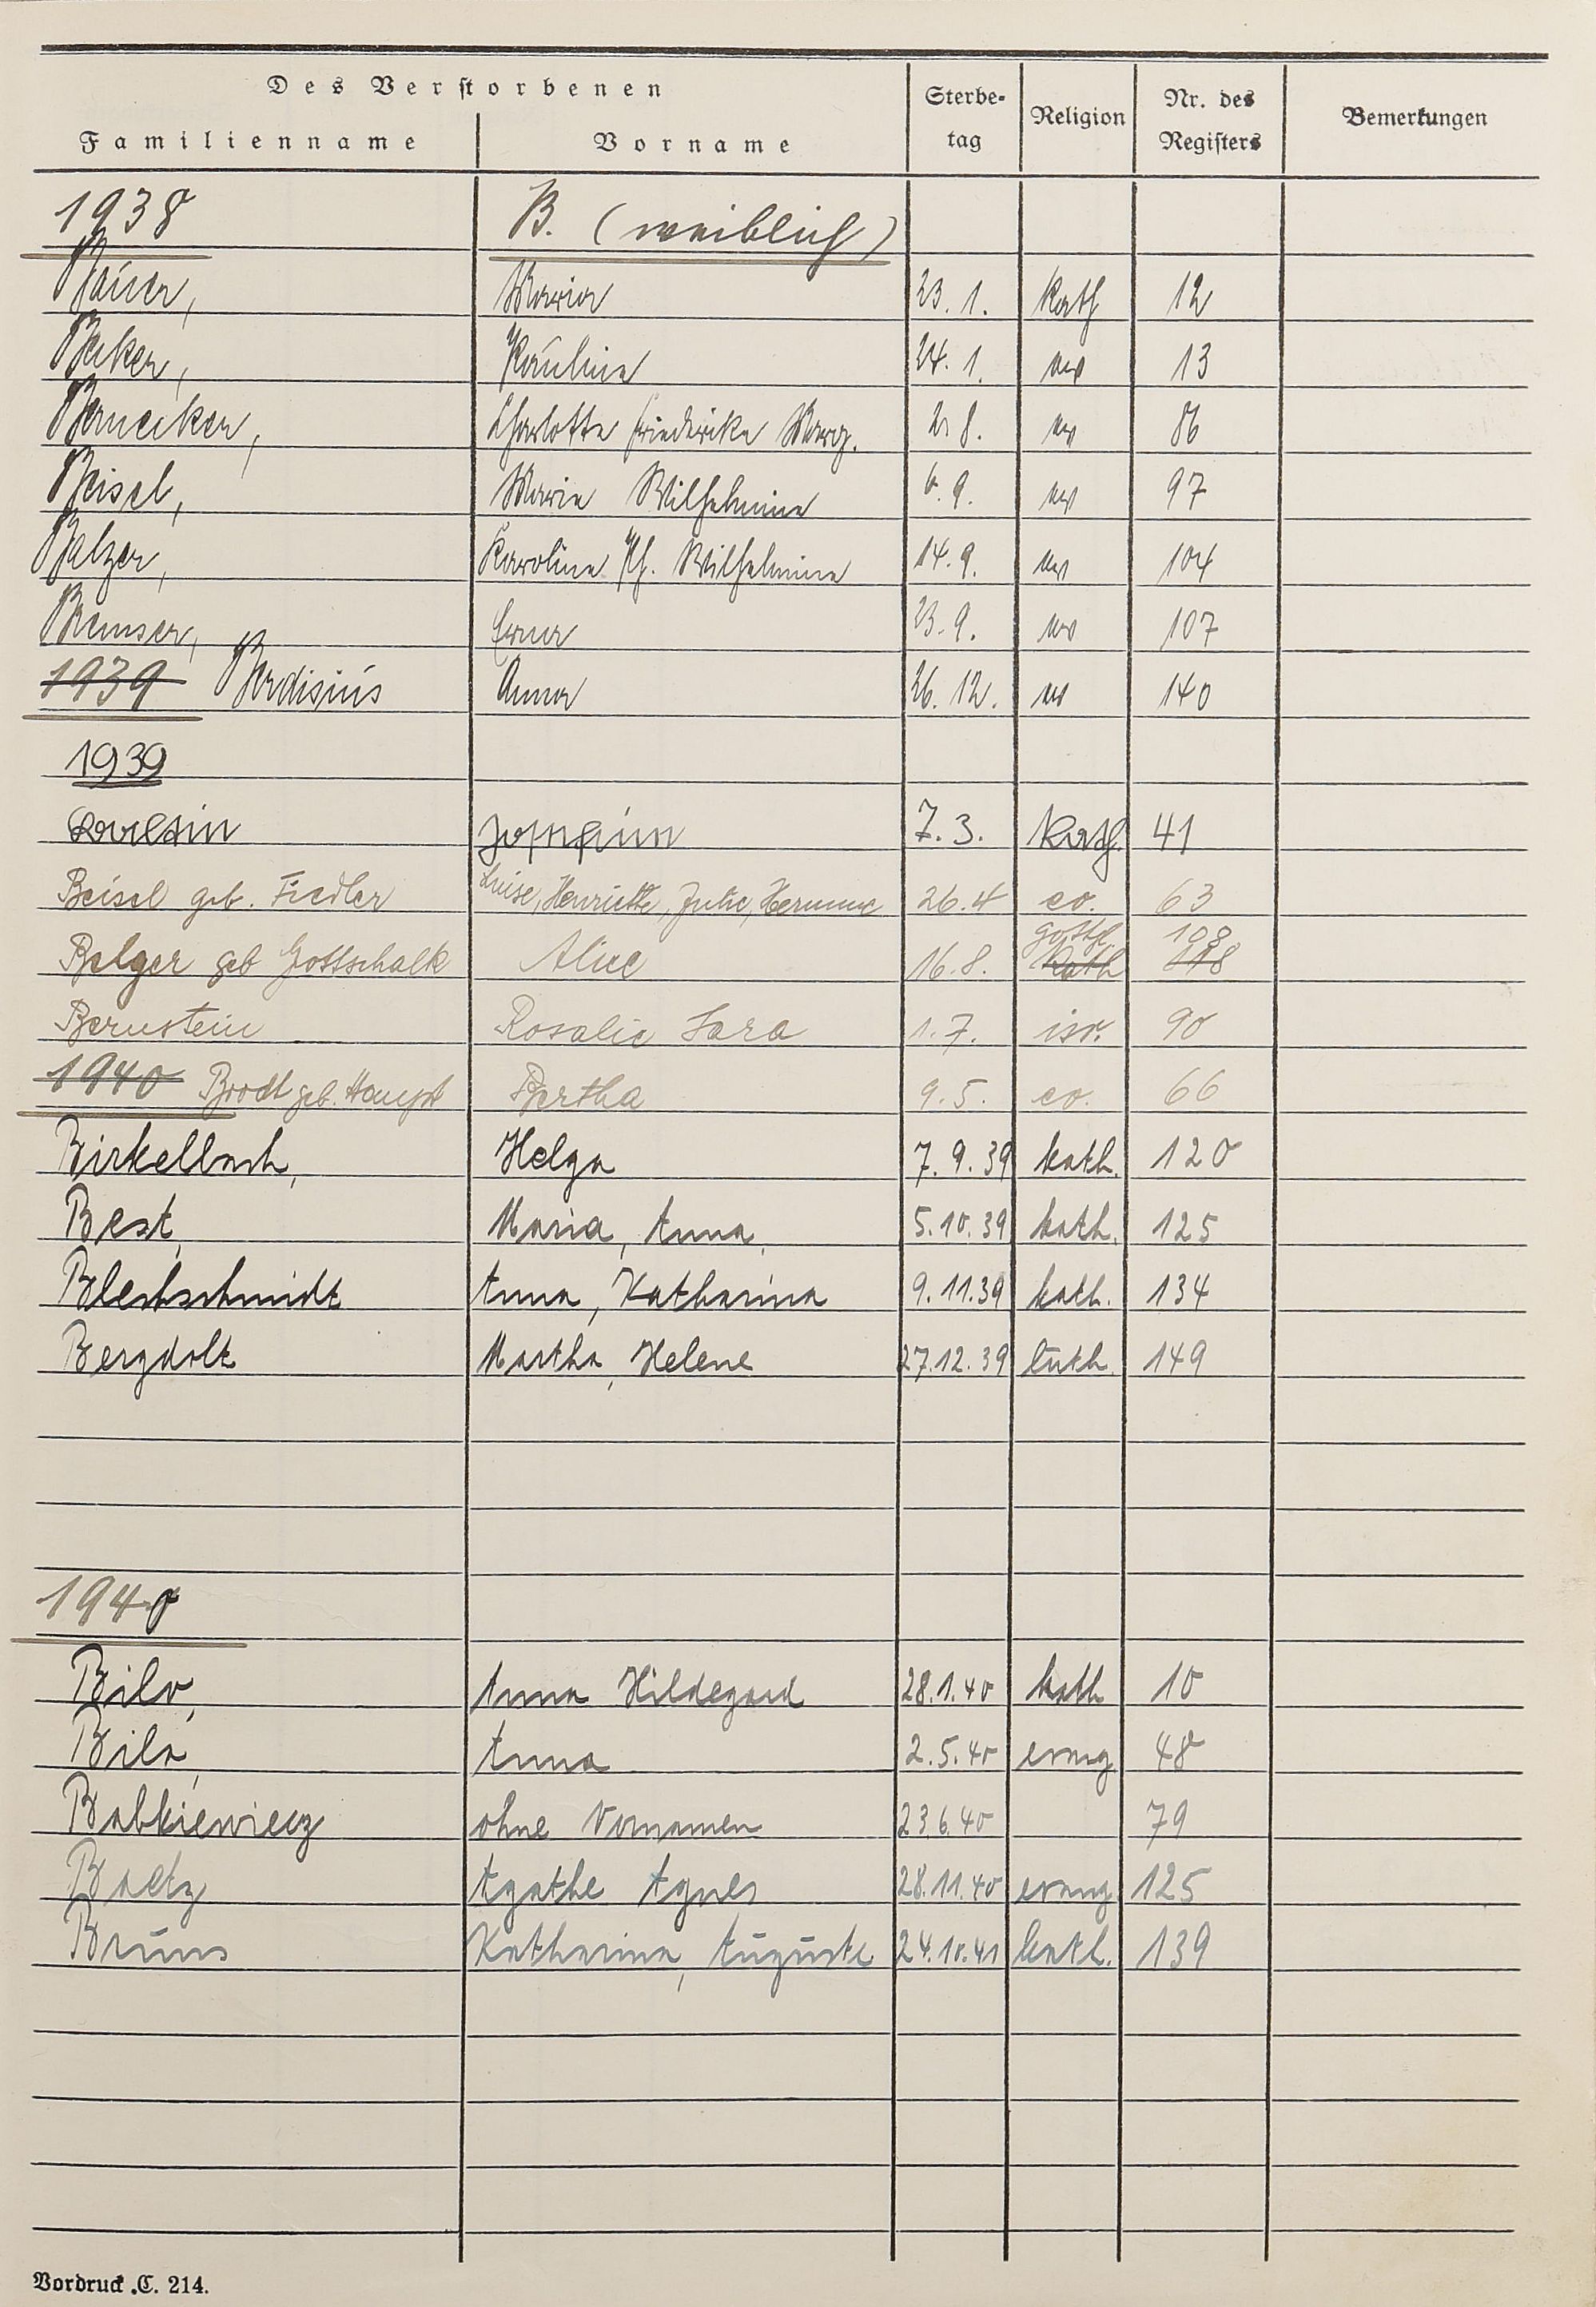 Des Verstorbenen
Familienname Vorname Sterbe-tag Religion Nr. des Registers Bemerkungen
1938 B. (weiblich)
Bauer, Maria 23. 1. kath 12
Beker, Pauline 24. 1. ev 13
Bernecker, Charlotte Friederike Marg. 2. 8. ev 86
Beisel, Marie Wilhelmine 6. 9. ev 97
Balzer, Karoline Ph. Wilhelmine 14. 9. ev 104
Bremser, Erna 23. 9. ev 107
1939 Berdisius Anna 26. 12. ev 140
1939
Josefine 7. 3. kath. 41
Beisel geb. Fiedler Luise, Henriette, Julie, Hermine 26. 4 ev. 63
Belger geb Gottschalk Alice 16. 8. gottgl. kath 108
Bernstein Rosalie Sara 1. 7. isr. 90
1940 Brodt geb. Haupt Bertha 9. 5. ev. 66
Birkelbach, Helga 7. 9. 39 kath. 120
Best, Maria, Anna, 5. 10. 39 kath. 125
Blechschmidt Anna, Katharina 9. 11. 39 kath. 134
Bergdolt Martha, Helene 27. 12. 39 luth. 149
1940
Bilo, Anna Hildegard 28. 1. 40 kath 10
Bilo, Anna 2. 5. 40 evang 48
Babkiewiecz ohne Vornamen 23. 6. 40 79
Baetz Agathe Agnes 28. 11. 40 evang. 125
Bruns Katharina, Auguste 24. 10. 41 kath. 139
Vordruck C. 214.